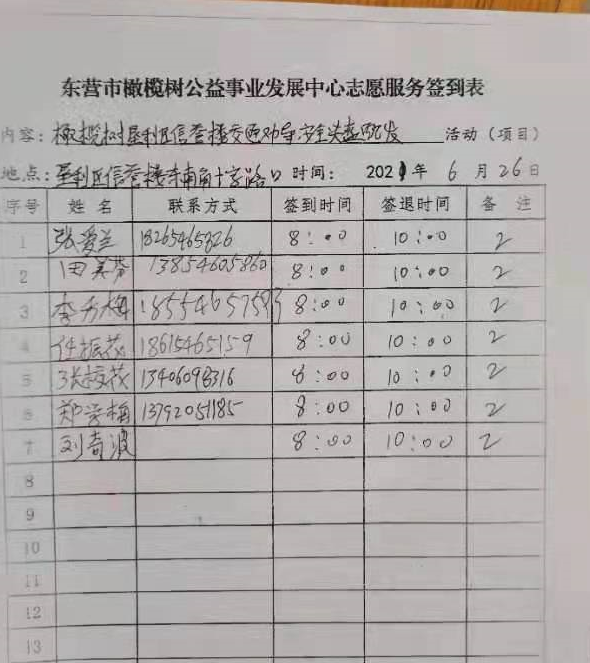 东营市橄榄树公益事业发展中心志愿服务签到表
内容：橄榄树垦利区信誉楼交通劝导 活动（项目）
地点：垦利区信誉楼东南角十字路口 时间：2021年 6 月 26 日
序号 姓名 联系方式 签到时间 签退时间 备注
1 张爱兰 18265465826 8:00 10:00 2
2 田美芬 13854605860 8:00 10:00 2
3 李秀梅 8:00 10:00 2
4 任振花 18615465159 8:00 10:00 2
5 8:00 10:00 2
6 郑学梅 13792051185 8:00 10:00 2
7 刘奇波 8:00 10:00 2
8
9
10
11
12
13